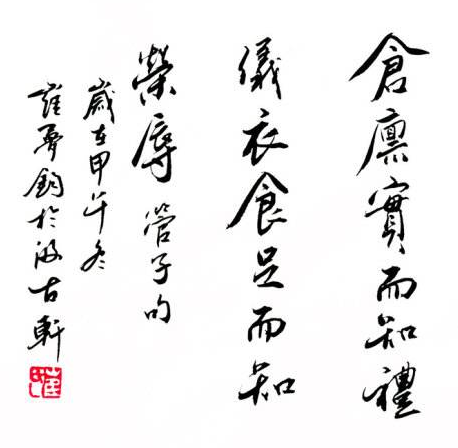 倉廩實而知禮
儀衣食足而知
榮辱管子句
歲在甲午冬
崔勇鈞於汲古軒